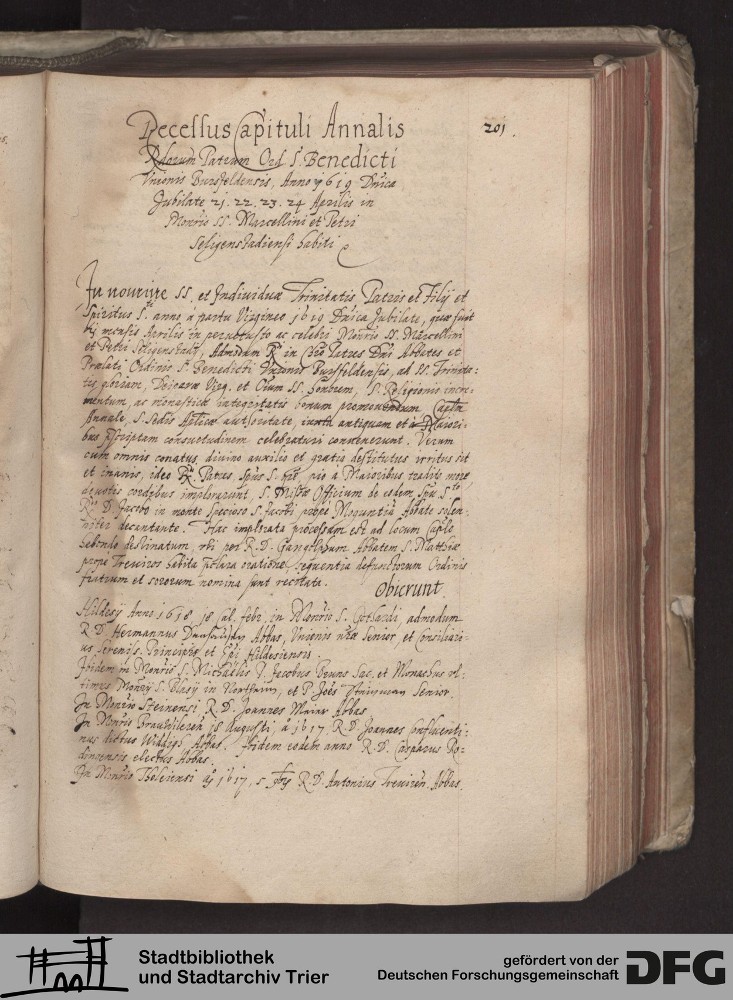 Recessus Capituli Annalis
201.
Rdorum Patrum Ord S. Benedicti
Unionis Bursfeldensis, Anno 1619 Dnica
Jubilate 21. 22. 23. 24 Aprilis in
Monrio SS. Marcellini et Petri
Seligenstadiensi habiti
In nomine SS. et Individuae Trinitatis, Patris et Filij et
Spiritus Sti anno a partu Virgineo 1619 Dnica Jubilate, quae fuit
mensis Aprilis in pervetusto ac celebri Monrio SS. Marcellini
et Petri Seligenstadij, Admodum R. in Patres Dni Abbates et
Praelati Ordinis S. Benedicti Unionis Bursfeldensis, ad SS. Trinita-
tis gloriam, Deiparae Virg. et Oium SS. honorem, S. Religionis incre-
mentum, ac monasticae integritatis bonum promovendum Caplm
Annale, S. Sedis Aplicae authoritate, iuxta antiquam et a Maiori-
bus pscriptam consuetudinem celebraturi convenerunt. Verum
cum omnis conatus divino auxilio et gratia destitutus irritus sit
et inanis, ideo R. Patres, Spus S. pie a Maioribus tradito more,
devotis cordibus implorarunt, S. Missae Officium de eodem Spu S.to
R. D. Jacobo in monte specioso S. Jacobi prope Moguntia Abbate solen-
niter decantante. Hac implorata processum est ad locum Caplo
habendo destinatum, ubi per R. D. Gangolphum Abbatem S. Matthiae
prope Treviros habita oratione, sequentia defunctorum Ordinis
fratrum et sororum nomina sunt recitata.
Obierunt
Hildesij Anno 1618 18 Cal. febr. in Monrio S. Gothardi, admodum
R D Hermannus Abbas, Unionis nrae Senior, et Consiliari-
us Serenis. Principis et Epi Hildesiensis.
Ibidem in Monrio S. Michaelis P. Jacobus Bruns Sac. et Monachus ul-
timus Monrij S. Blasij in Northeim, et P. Joes Senior.
In Monrio Steinensi R. D. Joannes Maior Abbas
In Monrio Brauwilerea 18 Augusti, a 1617 R. D. Joannes Confluenti-
nus dictus Widdigs Abbas. Ibidem eodem anno R. D. Casparus Ro-
dingensis electus Abbas.
In Monrio Tholeiensi 1617, 5 R. D. Antonius Treviren Abbas.
Stadtbibliothek
und Stadtarchiv Trier
gefördert von der
Deutschen Forschungsgemeinschaft
DFG